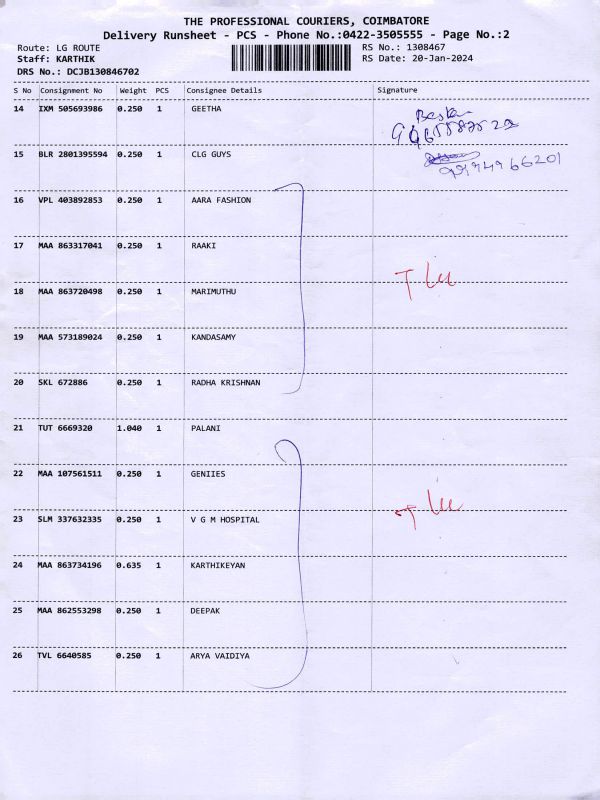 THE PROFESSIONAL COURIERS, COIMBATORE
Delivery Runsheet - PCS - Phone No.:0422-3505555 - Page No.:2
Route: LG ROUTE RS No.: 1308467
Staff: KARTHIK RS Date: 20-Jan-2024
DRS No.: DCJB130846702
S No Consignment No Weight PCS Consignee Details Signature
14 IXM 505693986 0.250 1 GEETHA
15 BLR 2801395594 0.250 1 CLG GUYS
16 VPL 403892853 0.250 1 AARA FASHION
17 MAA 863317041 0.250 1 RAAKI
18 MAA 863720498 0.250 1 MARIMUTHU
19 MAA 573189024 0.250 1 KANDASAMY
20 SKL 672886 0.250 1 RADHA KRISHNAN
21 TUT 6669320 1.040 1 PALANI
22 MAA 107561511 0.250 1 GENIIES
23 SLM 337632335 0.250 1 V G M HOSPITAL
24 MAA 863734196 0.635 1 KARTHIKEYAN
25 MAA 862553298 0.250 1 DEEPAK
26 TVL 6640585 0.250 1 ARYA VAIDIYA